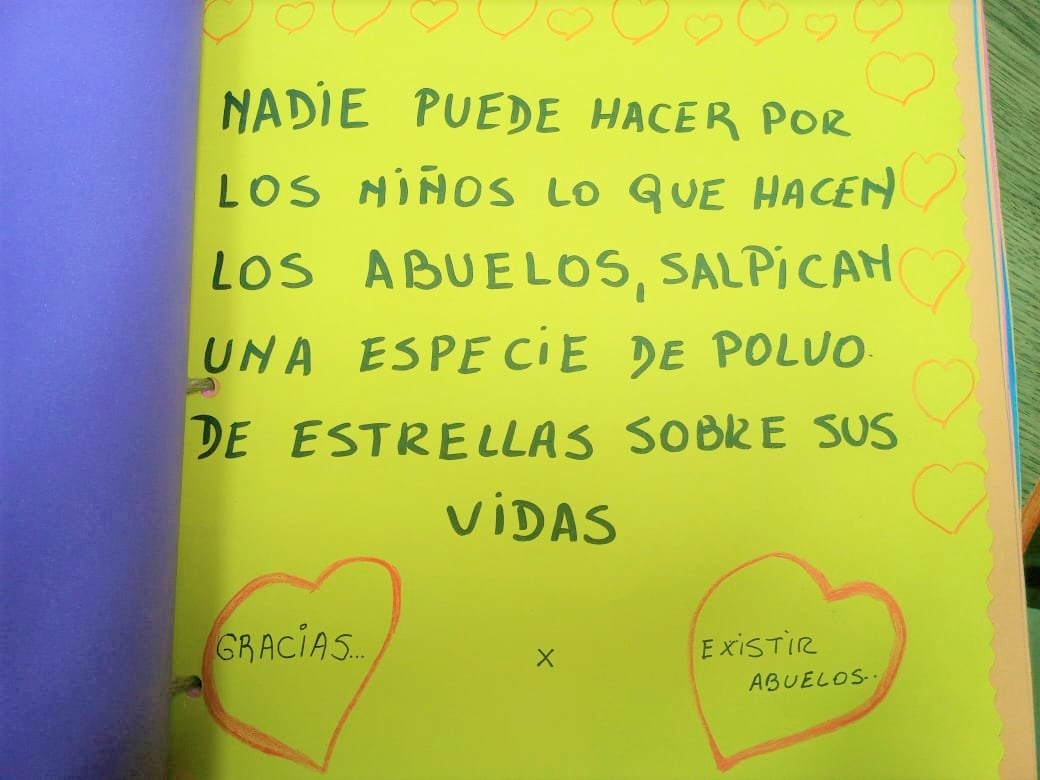 NADIE PUEDE HACER POR
LOS NIÑOS LO QUE HACEN
LOS ABUELOS, SALPICAN
UNA ESPECIE DE POLVO
DE ESTRELLAS SOBRE SUS
VIDAS
GRACIAS... x EXISTIR
ABUELOS..